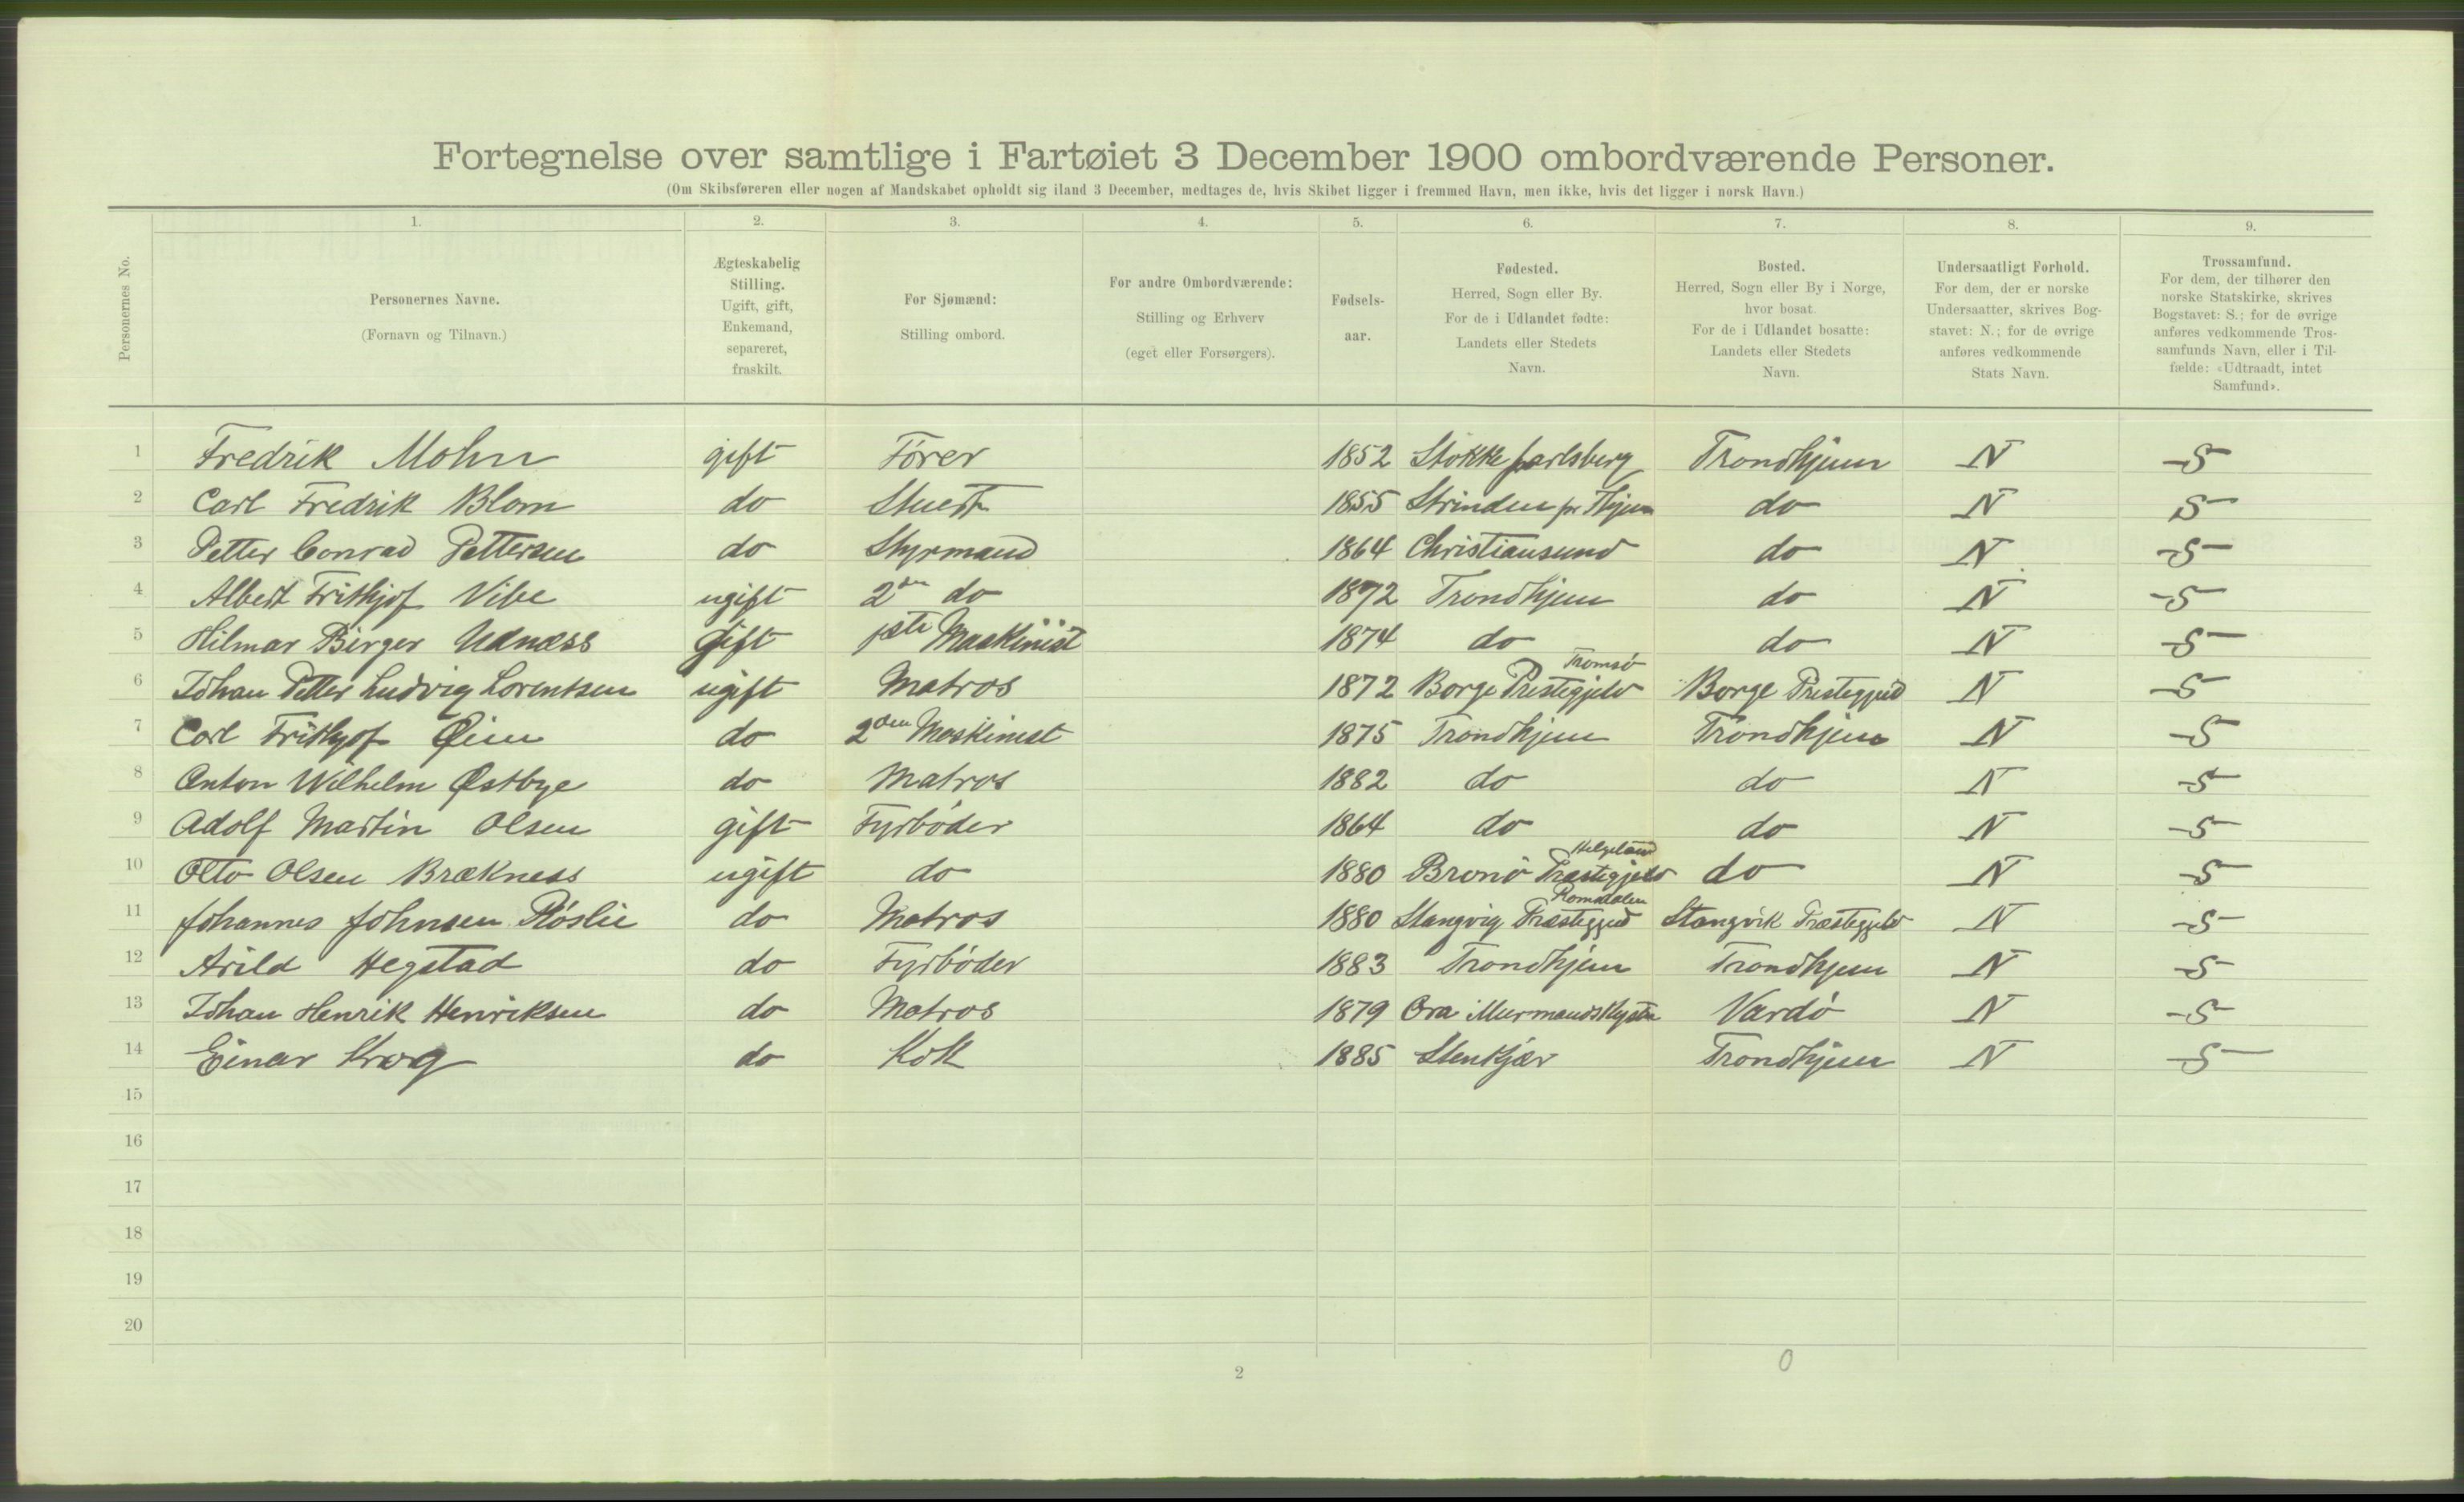 Fortegnelse over samtlige i Fartøiet 3 December 1900 ombordværende Personer.
(Om Skibsføreren eller nogen af Mandskabet opholdt sig iland 3 December, medtages de, hvis Skibet ligger i fremmed Havn, men ikke, hvis det ligger i norsk Havn.)
Personernes No.
1. 2. 3. 4. 5. 6. 7. 8. 9.
Personernes Navne.
(Fornavn og Tilnavn.)
Ægteskabelig
Stilling.
Ugift, gift,
Enkemand,
separeret,
fraskilt.
For Sjømænd:
Stilling ombord.
For andre Ombordværende:
Stilling og Erhverv
(eget eller Forsørgers).
Fødsels-
aar.
Fødested.
Herred, Sogn eller By.
For de i Udlandet fødte:
Landets eller Stedets
Navn.
Bosted.
Herred, Sogn eller By i Norge,
hvor bosat.
For de i Udlandet bosatte:
Landets eller Stedets
Navn.
Undersaatligt Forhold.
For dem, der er norske
Undersaatter, skrives Bog-
stavet: N.; for de øvrige
anføres vedkommende
Stats Navn.
Trossamfund.
For dem, der tilhører den
norske Statskirke, skrives
Bogstavet: S.; for de øvrige
anføres vedkommende Tros-
samfunds Navn, eller i Til-
fælde: «Udtraadt, intet
Samfund».
1 Fredrik Mohn gift Fører 1852 Stokke Jarlsberg Trondhjem N S
2 Carl Fredrik Blom do Stuert 1855 Strinden pr Thjem do N S
3 Petter Conrad Pettersen do Styrmand 1864 Christiansund do N S
4 Albert Frithjof Vibe ugift 2den do 1872 Trondhjem do N S
5 Hilmar Birger Udnæss gift 1ste Maskinist 1874 do do N S
Tromsö
6 Johan Petter Ludvig Lorentsen ugift Matros 1872 Borge Prestegjeld Borge Prestegjeld N S
7 Carl Frithjof Øien do 2den Maskinist 1875 Trondhjem Trondhjem N S
8 Anton Wilhelm Østbye do Matros 1882 do do N S
9 Adolf Martin Olsen gift Fyrböder 1864 do do N S
Helgeland
10 Otto Olsen Brækness ugift do 1880 Bronö Præstegjeld do N S
Romsdalen
11 Johannes Johnsen Röslie do Matros 1880 Stangvig Præstegjeld Stangvik Præstegjeld N S
12 Arild Hegstad do Fyrböder 1883 Trondhjem Trondhjem N S
13 Johan Henrik Henriksen do Matros 1879 Ora Murmandskysten Vardö N S
14 Einar Krog do Kok 1885 Stenkjær Trondhjem N S
15
16
17
18
19
20
2
0